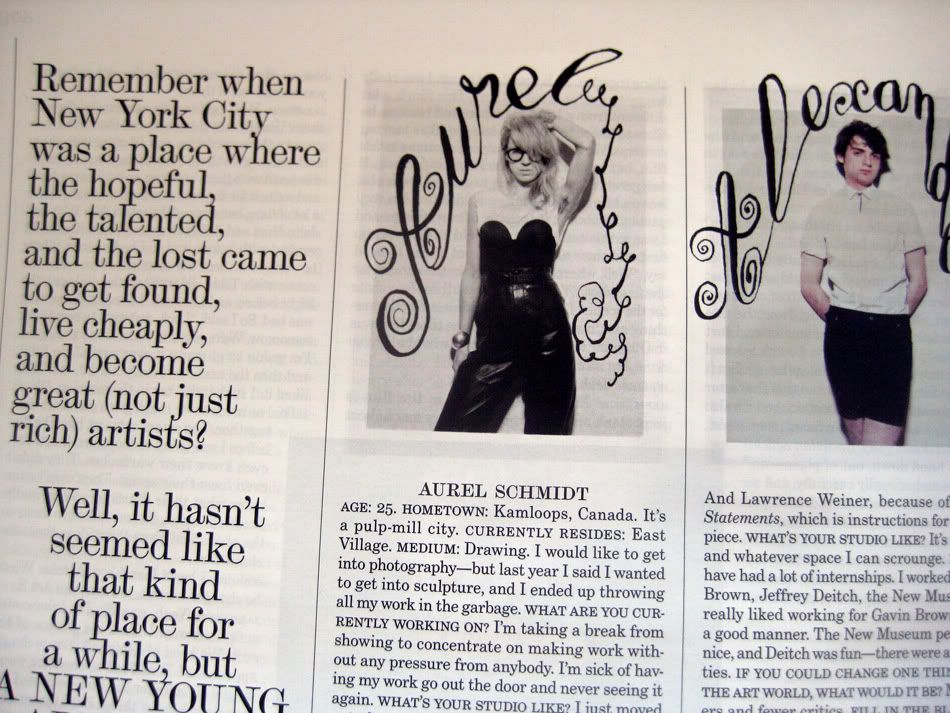 Remember when
New York City
was a place where
the hopeful,
the talented,
and the lost came
to get found,
live cheaply,
and become
great (not just
rich) artists?
Well, it hasn't
seemed like
that kind
of place for
a while, but
A NEW YOUNG
Aurel
AUREL SCHMIDT
AGE: 25. HOMETOWN: Kamloops, Canada. It's
a pulp-mill city. CURRENTLY RESIDES: East
Village. MEDIUM: Drawing. I would like to get
into photography—but last year I said I wanted
to get into sculpture, and I ended up throwing
all my work in the garbage. WHAT ARE YOU CUR-
RENTLY WORKING ON? I'm taking a break from
showing to concentrate on making work with-
out any pressure from anybody. I'm sick of hav-
ing my work go out the door and never seeing it
again. WHAT'S YOUR STUDIO LIKE? I just moved
Alexand
And Lawrence Weiner, because of
Statements, which is instructions for
piece. WHAT'S YOUR STUDIO LIKE? It's
and whatever space I can scrounge.
have had a lot of internships. I worked
Brown, Jeffrey Deitch, the New Mus
really liked working for Gavin Brow
a good manner. The New Museum pe
nice, and Deitch was fun—there were a
ties. IF YOU COULD CHANGE ONE THIN
THE ART WORLD, WHAT WOULD IT BE?
ers and fewer critics. FILL IN THE